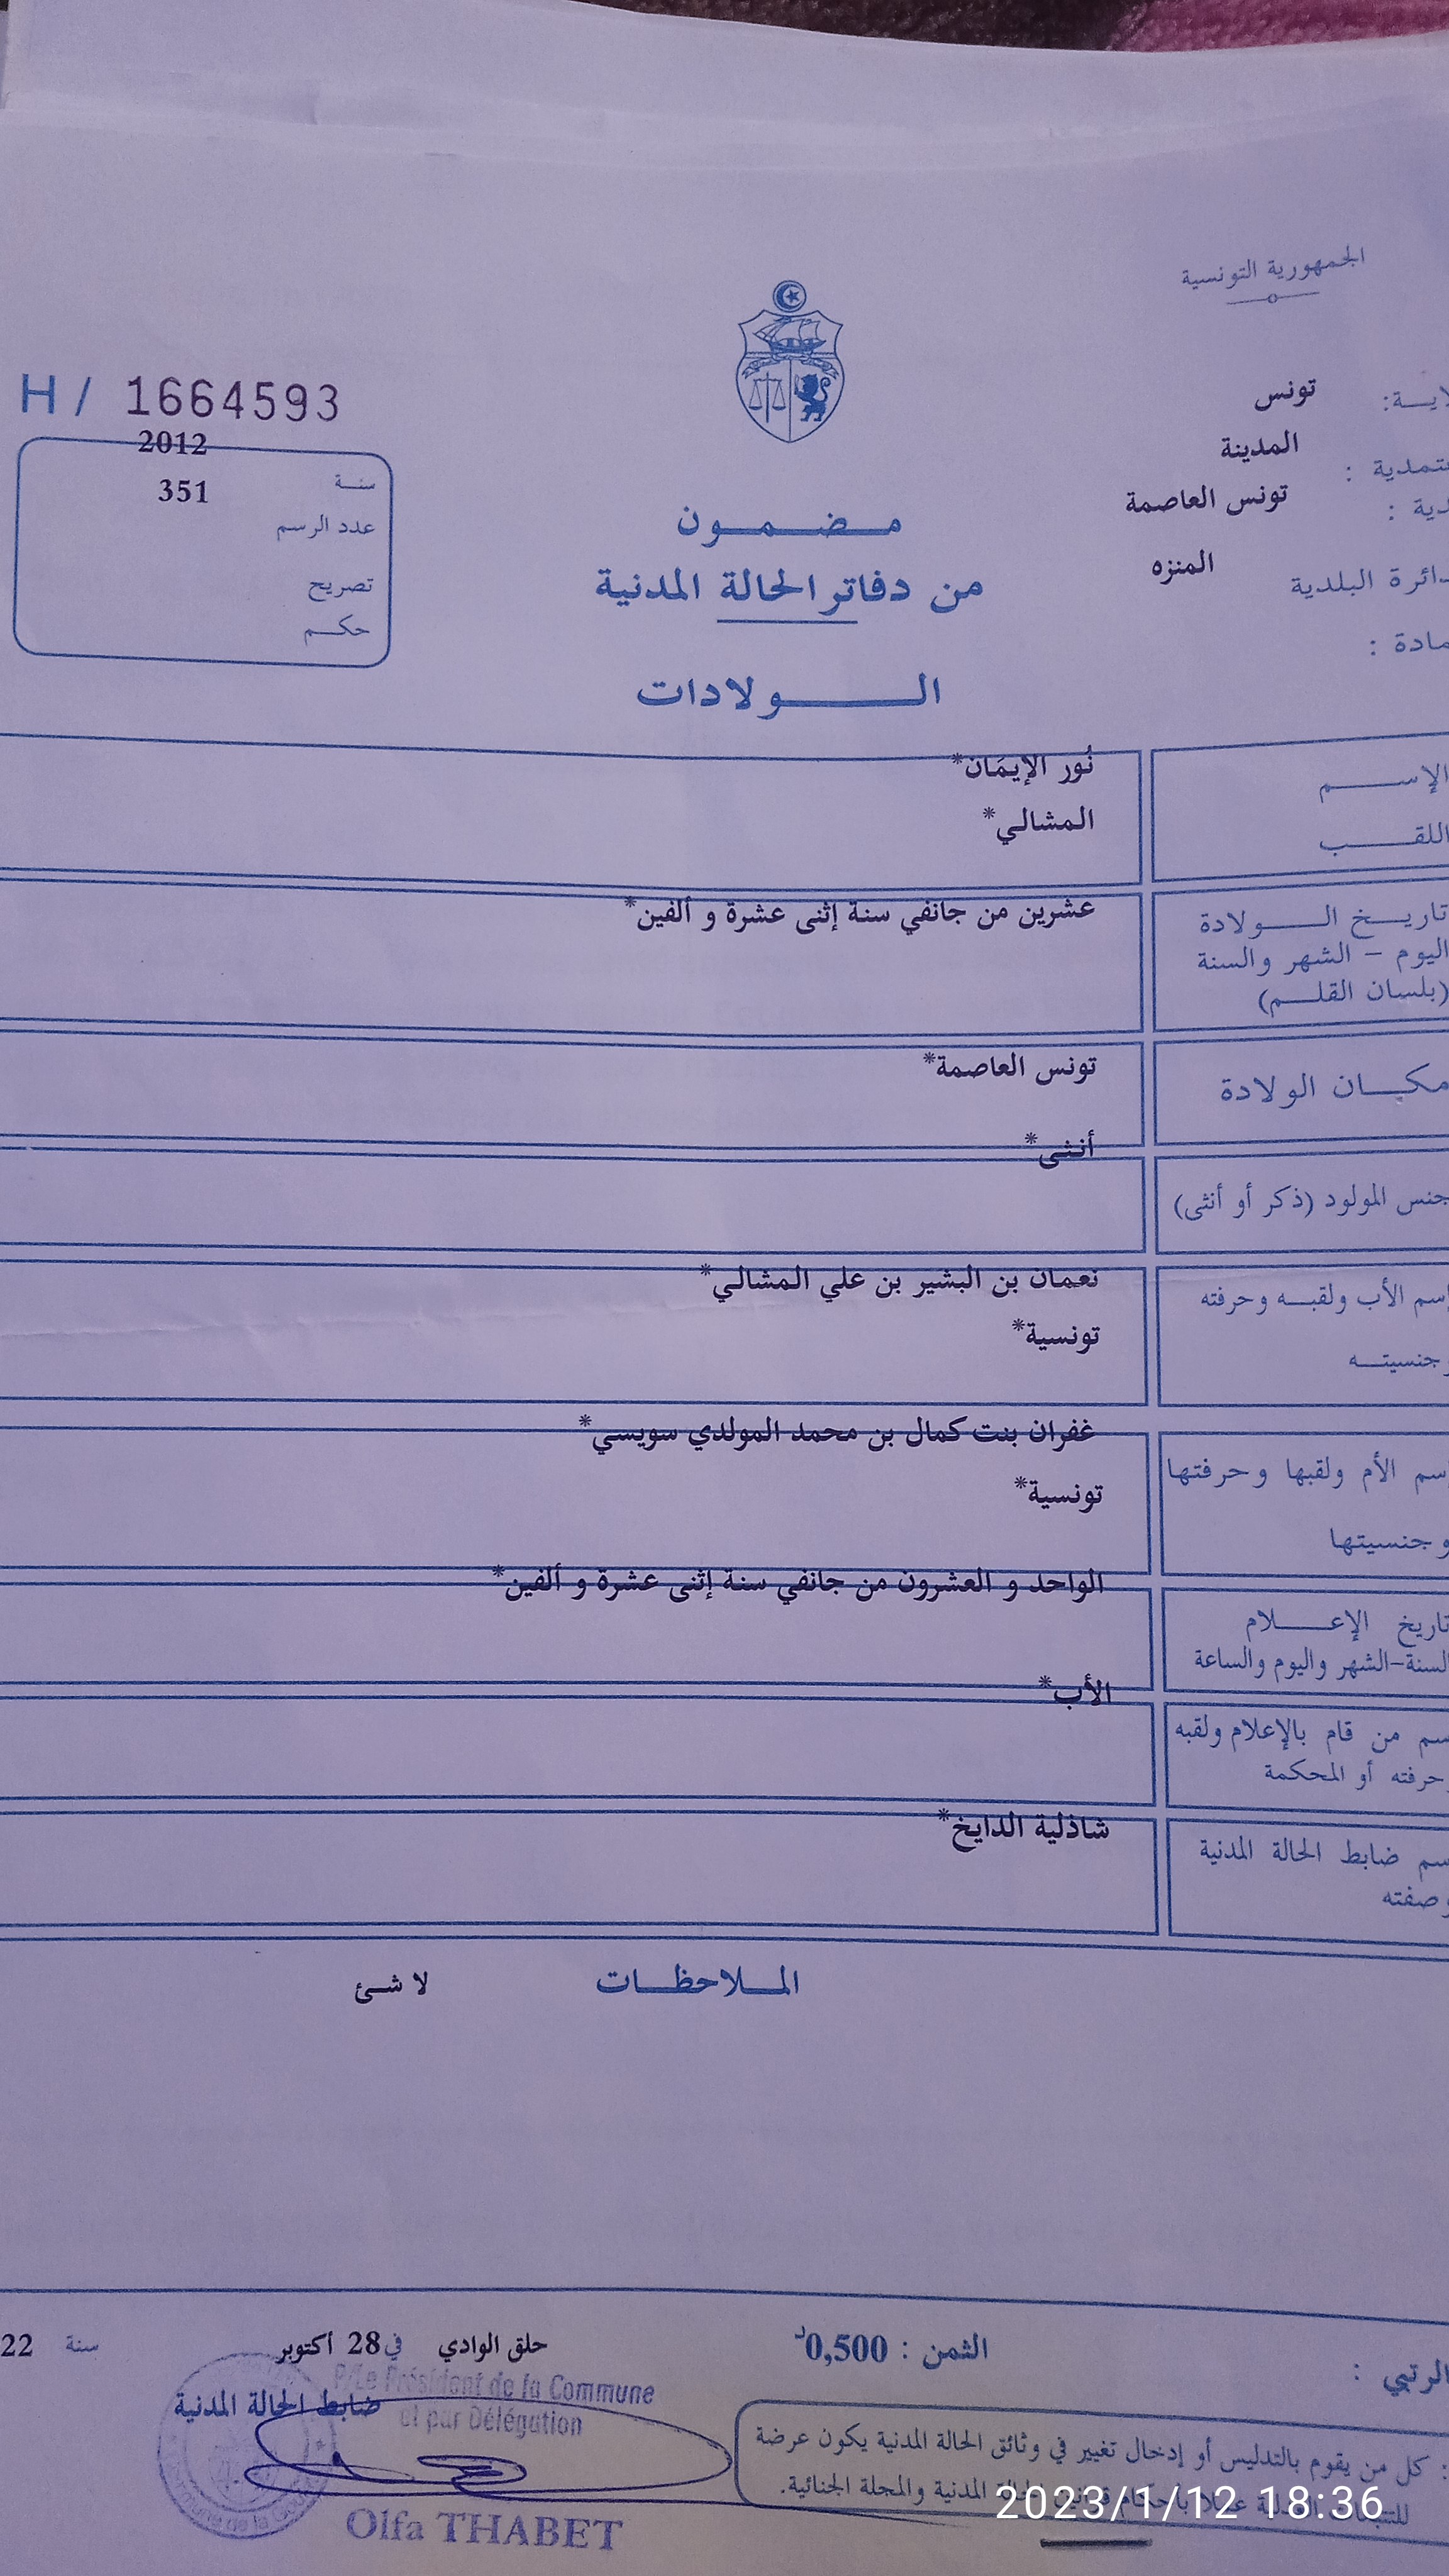 الجمهورية التونسية
H / 1664593
تونس
المدينة
تونس العاصمة
دائرة البلدية المنزه
2012
سنة
351
عدد الرسم
تصريح
حكم
مضمون
من دفاتر الحالة المدنية
الولادات
الإسم نُور الإيمَان*
اللقب المشالي*
تاريخ الولادة عشرين من جانفي سنة إثنى عشرة و ألفين*
اليوم – الشهر والسنة
(بلسان القلم)
مكان الولادة تونس العاصمة*
أنثى*
جنس المولود (ذكر أو أنثى)
إسم الأب ولقبه وحرفته نعمان بن البشير بن علي المشالي*
وجنسيته تونسية*
غفران بنت كمال بن محمد المولدي سويسي*
إسم الأم ولقبها وحرفتها
تونسية*
وجنسيتها
الواحد و العشرون من جانفي سنة إثنى عشرة و ألفين*
تاريخ الإعلام
السنة-الشهر واليوم والساعة
الأب*
إسم من قام بالإعلام ولقبه
وحرفته أو المحكمة
شاذلية الدايخ*
إسم ضابط الحالة المدنية
وصفته
الملاحظات لا شئ
الثمن : 0,500د
حلق الوادي في 28 أكتوبر سنة 22
P/Le Président de la Commune
et par Délégation
ضابط الحالة المدنية
Olfa THABET
كل من يقوم بالتدليس أو إدخال تغيير في وثائق الحالة المدنية يكون عرضة
الحالة المدنية والمجلة الجنائية.
2023/1/12 18:36